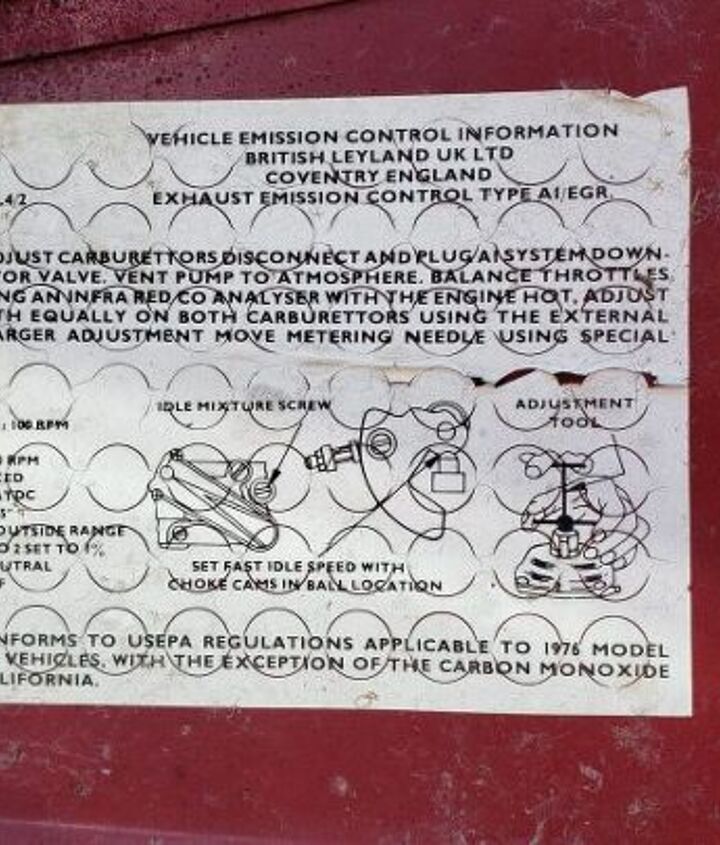 VEHICLE EMISSION CONTROL INFORMATION
BRITISH LEYLAND UK LTD
COVENTRY ENGLAND
.4/2 EXHAUST EMISSION CONTROL TYPE AI/EGR
DJUST CARBURETTORS DISCONNECT AND PLUG AI SYSTEM DOWN-
TOR VALVE. VENT PUMP TO ATMOSPHERE. BALANCE THROTTLES
NG AN INFRA RED CO ANALYSER WITH THE ENGINE HOT, ADJUST
TH EQUALLY ON BOTH CARBURETTORS USING THE EXTERNAL
ARGER ADJUSTMENT MOVE METERING NEEDLE USING SPECIAL
IDLE MIXTURE SCREW
ADJUSTMENT
TOOL
100 RPM
RPM
ED
TDC
OUTSIDE RANGE
O 2 SET TO 1%
UTRAL
F
SET FAST IDLE SPEED WITH
CHOKE CAMS IN BALL LOCATION
NFORMS TO USEPA REGULATIONS APPLICABLE TO 1976 MODEL
VEHICLES, WITH THE EXCEPTION OF THE CARBON MONOXIDE
LIFORNIA.